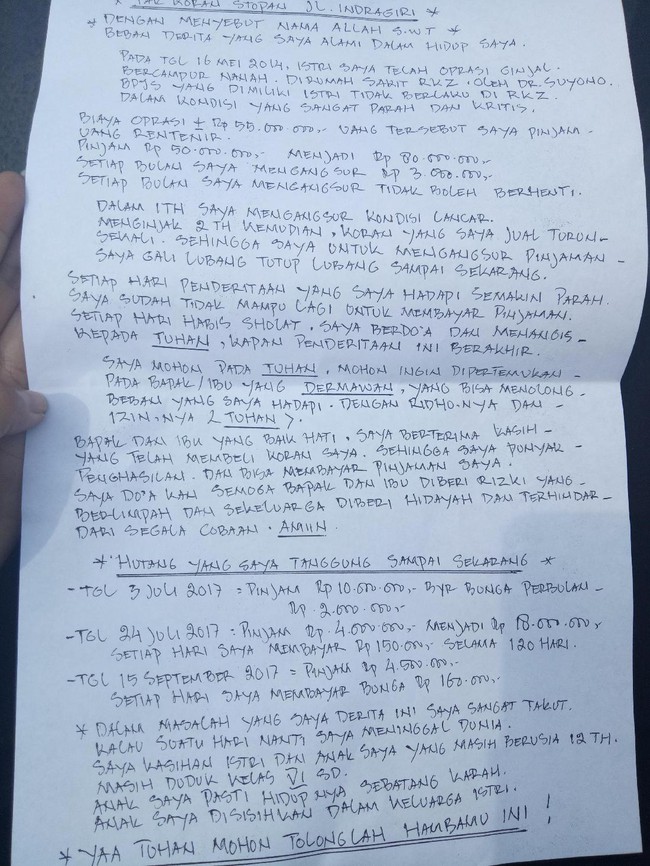 * TAK KORAN STOPAN JL. INDRAGIRI *
* DENGAN MENYEBUT NAMA ALLAH S.W.T *
BEBAN DERITA YANG SAYA ALAMI DALAM HIDUP SAYA.
PADA TGL 16 MEI 2014, ISTRI SAYA TELAH OPRASI GINJAL
BERCAMPUR NANAH. DIRUMAH SAKIT RKZ. OLEH DR. SUYONO.
BPJS YANG DIMILIKI ISTRI TIDAK BERLAKU DI RKZ.
DALAM KONDISI YANG SANGAT PARAH DAN KRITIS.
BIAYA OPRASI ± Rp 55.000.000,- UANG TERSEBUT SAYA PINJAM -
UANG RENTENIR.
PINJAM Rp 50.000.000,- MENJADI Rp 80.000.000,-
SETIAP BULAN SAYA MENGANGSUR Rp 3.000.000,-
SETIAP BULAN SAYA MENGANGSUR TIDAK BOLEH BERHENTI.
DALAM 1TH SAYA MENGANGSUR KONDISI LANCAR.
MENGINJAK 2TH KEMUDIAN, KORAN YANG SAYA JUAL TURUN -
SEKALI. SEHINGGA SAYA UNTUK MENGANGSUR PINJAMAN -
SAYA GALI LUBANG TUTUP LUBANG SAMPAI SEKARANG.
SETIAP HARI PENDERITAAN YANG SAYA HADAPI SEMAKIN PARAH.
SAYA SUDAH TIDAK MAMPU LAGI UNTUK MEMBAYAR PINJAMAN.
SETIAP HARI HABIS SHOLAT. SAYA BERDO'A DAN MENANGIS -
KEPADA TUHAN, KAPAN PENDERITAAN INI BERAKHIR.
SAYA MOHON PADA TUHAN. MOHON INGIN DIPERTEMUKAN -
PADA BAPAK/IBU YANG DERMAWAN, YANG BISA MENOLONG -
BEBAN YANG SAYA HADAPI. DENGAN RIDHO-NYA DAN -
IZIN-NYA < TUHAN >.
BAPAK DAN IBU YANG BAIK HATI. SAYA BERTERIMA KASIH -
YANG TELAH MEMBELI KORAN SAYA. SEHINGGA SAYA PUNYAK -
PENGHASILAN. DAN BISA MEMBAYAR PINJAMAN SAYA.
SAYA DO'A KAN SEMOGA BAPAK DAN IBU DIBERI RIZKI YANG -
BERLIMPAH DAN SEKELUARGA DIBERI HIDAYAH DAN TERHINDAR -
DARI SEGALA COBAAN. AMIIN.
* HUTANG YANG SAYA TANGGUNG SAMPAI SEKARANG *
- TGL 3 JULI 2017 = PINJAM Rp 10.000.000,- BYR BUNGA PERBULAN -
Rp. 2.000.000,-
- TGL 24 JULI 2017 : PINJAM Rp. 4.000.000,- MENJADI Rp 18.000.000,-
SETIAP HARI SAYA MEMBAYAR Rp 150.000,- SELAMA 120 HARI.
- TGL 15 SEPTEMBER 2017 = PINJAM Rp 4.500.000,-
SETIAP HARI SAYA MEMBAYAR BUNGA Rp 160.000,-
* DALAM MASALAH YANG SAYA DERITA INI SAYA SANGAT TAKUT.
KALAU SUATU HARI NANTI SAYA MENINGGAL DUNIA.
SAYA KASIHAN ISTRI DAN ANAK SAYA YANG MASIH BERUSIA 12 TH.
MASIH DUDUK KELAS VI SD.
ANAK SAYA PASTI HIDUPNYA SEBATANG KARAH.
ANAK SAYA DISISIHKAN DALAM KELUARGA ISTRI.
* YAA TUHAN MOHON TOLONGLAH HAMBAMU INI !